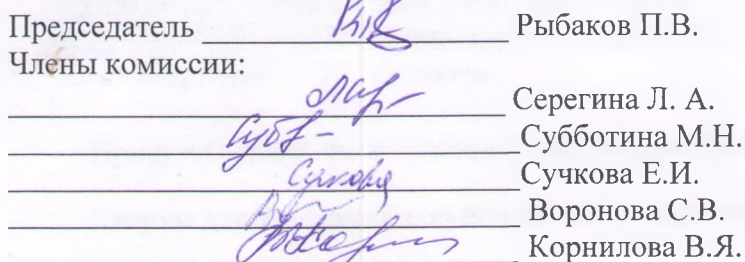 Председатель Рыбаков П.В.
Члены комиссии:
Серегина Л. А.
Субботина М.Н.
Сучкова Е.И.
Воронова С.В.
Корнилова В.Я.